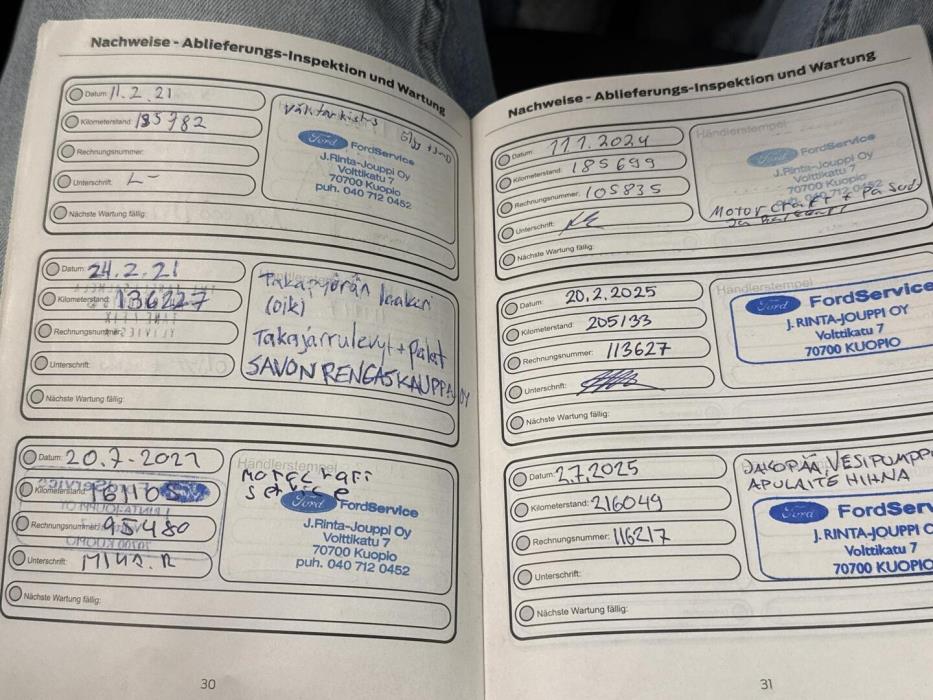 Nachweise - Ablieferungs-Inspektion und Wartung
Datum: 11.2.21
Kilometerstand: 135782
Rechnungsnummer:
Unterschrift:
Nächste Wartung fällig:
Ford FordService
J.Rinta-Jouppi Oy
Volttikatu 7
70700 Kuopio
puh. 040 712 0452
Datum: 24.2.21
Kilometerstand: 136227
Rechnungsnummer:
Unterschrift:
Nächste Wartung fällig:
Takapyörän laakeri
(oik)
Takajarrulevyt + palat
SAVON RENGASKAUPPA OY
Datum: 20.7-2021
Kilometerstand:
Rechnungsnummer: 95480
Unterschrift:
Nächste Wartung fällig:
Händlerstempel
Ford FordService
J.Rinta-Jouppi Oy
Volttikatu 7
70700 Kuopio
puh. 040 712 0452
30
Nachweise - Ablieferungs-Inspektion und Wartung
Datum: 11.1.2024
Kilometerstand: 185699
Rechnungsnummer: 105835
Unterschrift:
Nächste Wartung fällig:
Händlerstempel
Ford FordService
J.Rinta-Jouppi Oy
Volttikatu 7
70700 Kuopio
puh. 040 712 0452
Datum: 20.2.2025
Kilometerstand: 205133
Rechnungsnummer: 113627
Unterschrift:
Nächste Wartung fällig:
Händlerstempel
Ford FordService
J. RINTA-JOUPPI OY
Volttikatu 7
70700 KUOPIO
Datum: 2.7.2025
Kilometerstand: 216049
Rechnungsnummer: 116217
Unterschrift:
Nächste Wartung fällig:
JAKOPÄÄ, VESIPUMPPU
APULAITE HIHNA
Ford FordService
J. RINTA-JOUPPI OY
Volttikatu 7
70700 KUOPIO
31